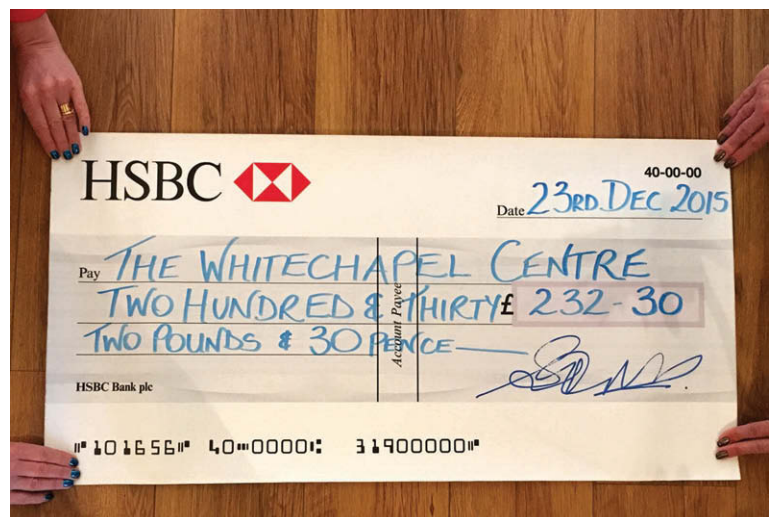 HSBC
40-00-00
Date 23RD DEC 2015
Pay THE WHITECHAPEL CENTRE
TWO HUNDRED & THIRTY £ 232-30
TWO POUNDS & 30 PENCE
Account Payee
HSBC Bank plc
⑈101656⑈ 40⑉0000⑆ 31900000⑈